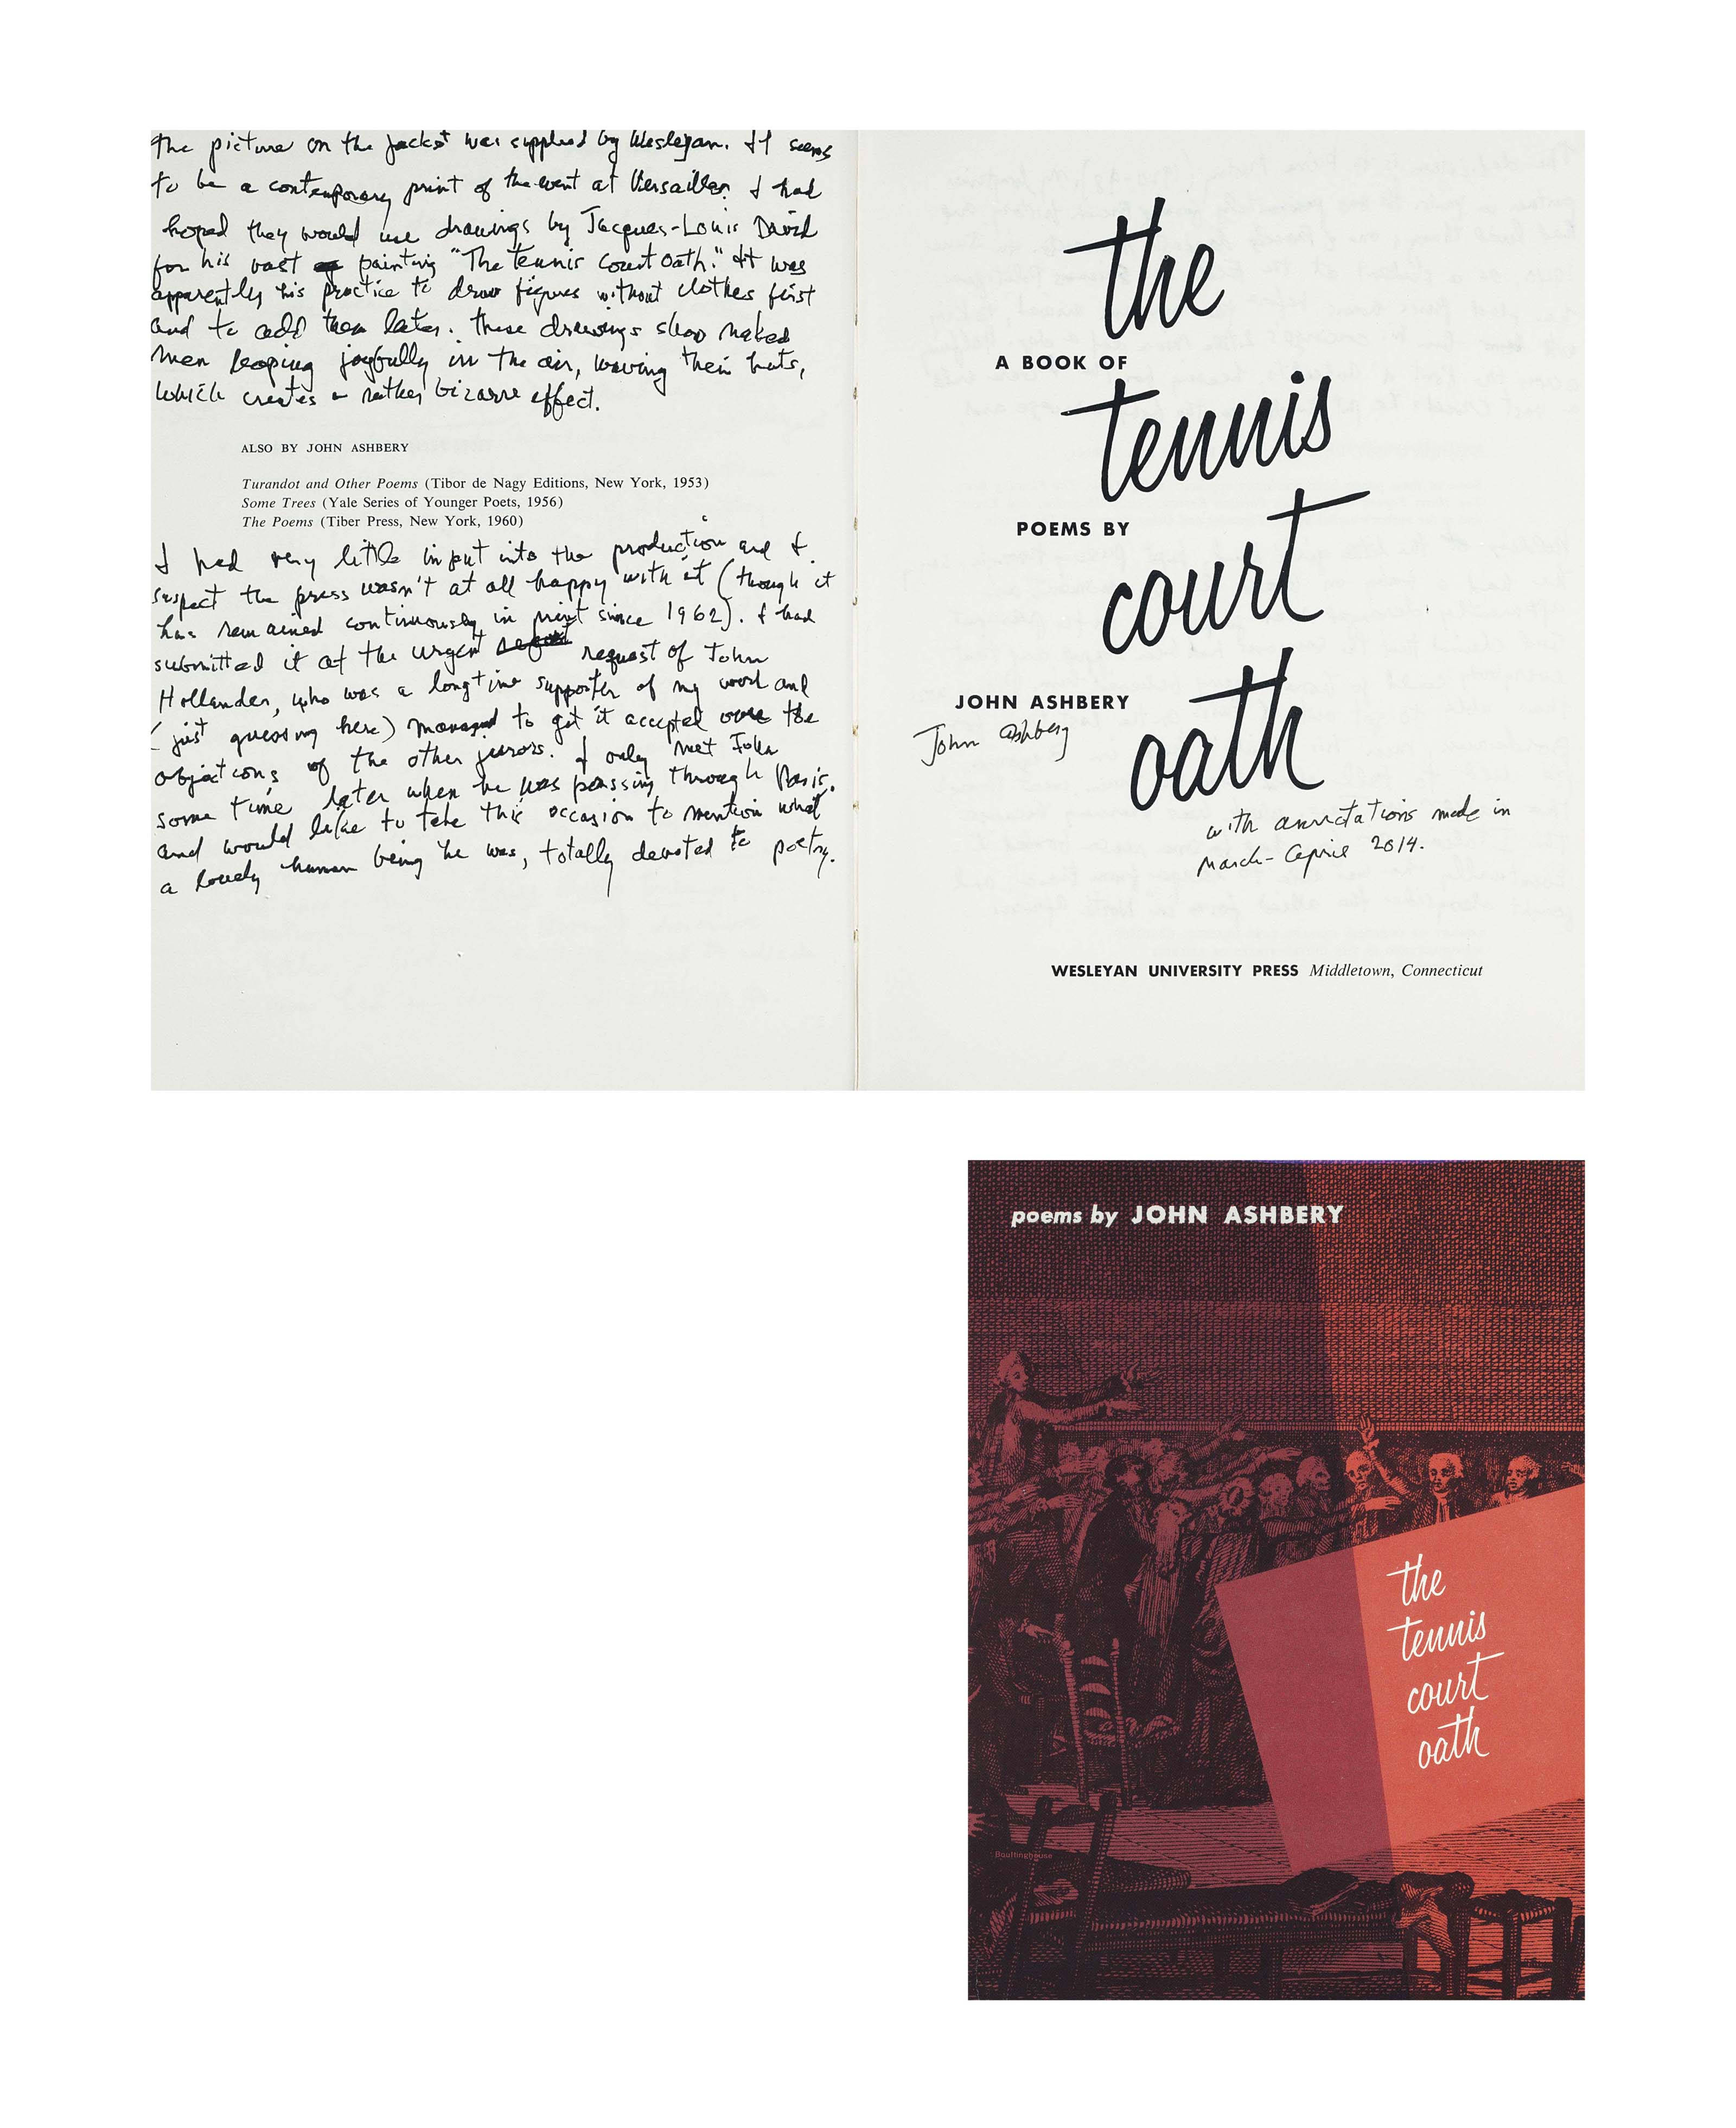 The picture on the jacket was supplied by Wesleyan. It seems
to be a contemporary print of the event at Versailles. I had
hoped they would use drawings by Jacques-Louis David
for his vast painting "The Tennis Court Oath." It was
apparently his practice to draw figures without clothes first
and to add them later. These drawings show naked
men leaping joyfully in the air, waving their hats,
which creates a rather bizarre effect.
ALSO BY JOHN ASHBERY
Turandot and Other Poems (Tibor de Nagy Editions, New York, 1953)
Some Trees (Yale Series of Younger Poets, 1956)
The Poems (Tiber Press, New York, 1960)
I had very little input into the production and I
suspect the press wasn't at all happy with it (though it
has remained continuously in print since 1962). I had
submitted it at the urgent request of John
Hollander, who was a longtime supporter of my work and
(just guessing here) managed to get it accepted over the
objections of the other jurors. I only met John
some time later when he was passing through Paris.
and would like to take this occasion to mention what
a lovely human being he was, totally devoted to poetry.
the
A BOOK OF
tennis
POEMS BY
court
JOHN ASHBERY
John Ashbery
oath
with annotations made in
March-April 2014.
WESLEYAN UNIVERSITY PRESS Middletown, Connecticut
poems by JOHN ASHBERY
the
tennis
court
oath
Boultinghouse